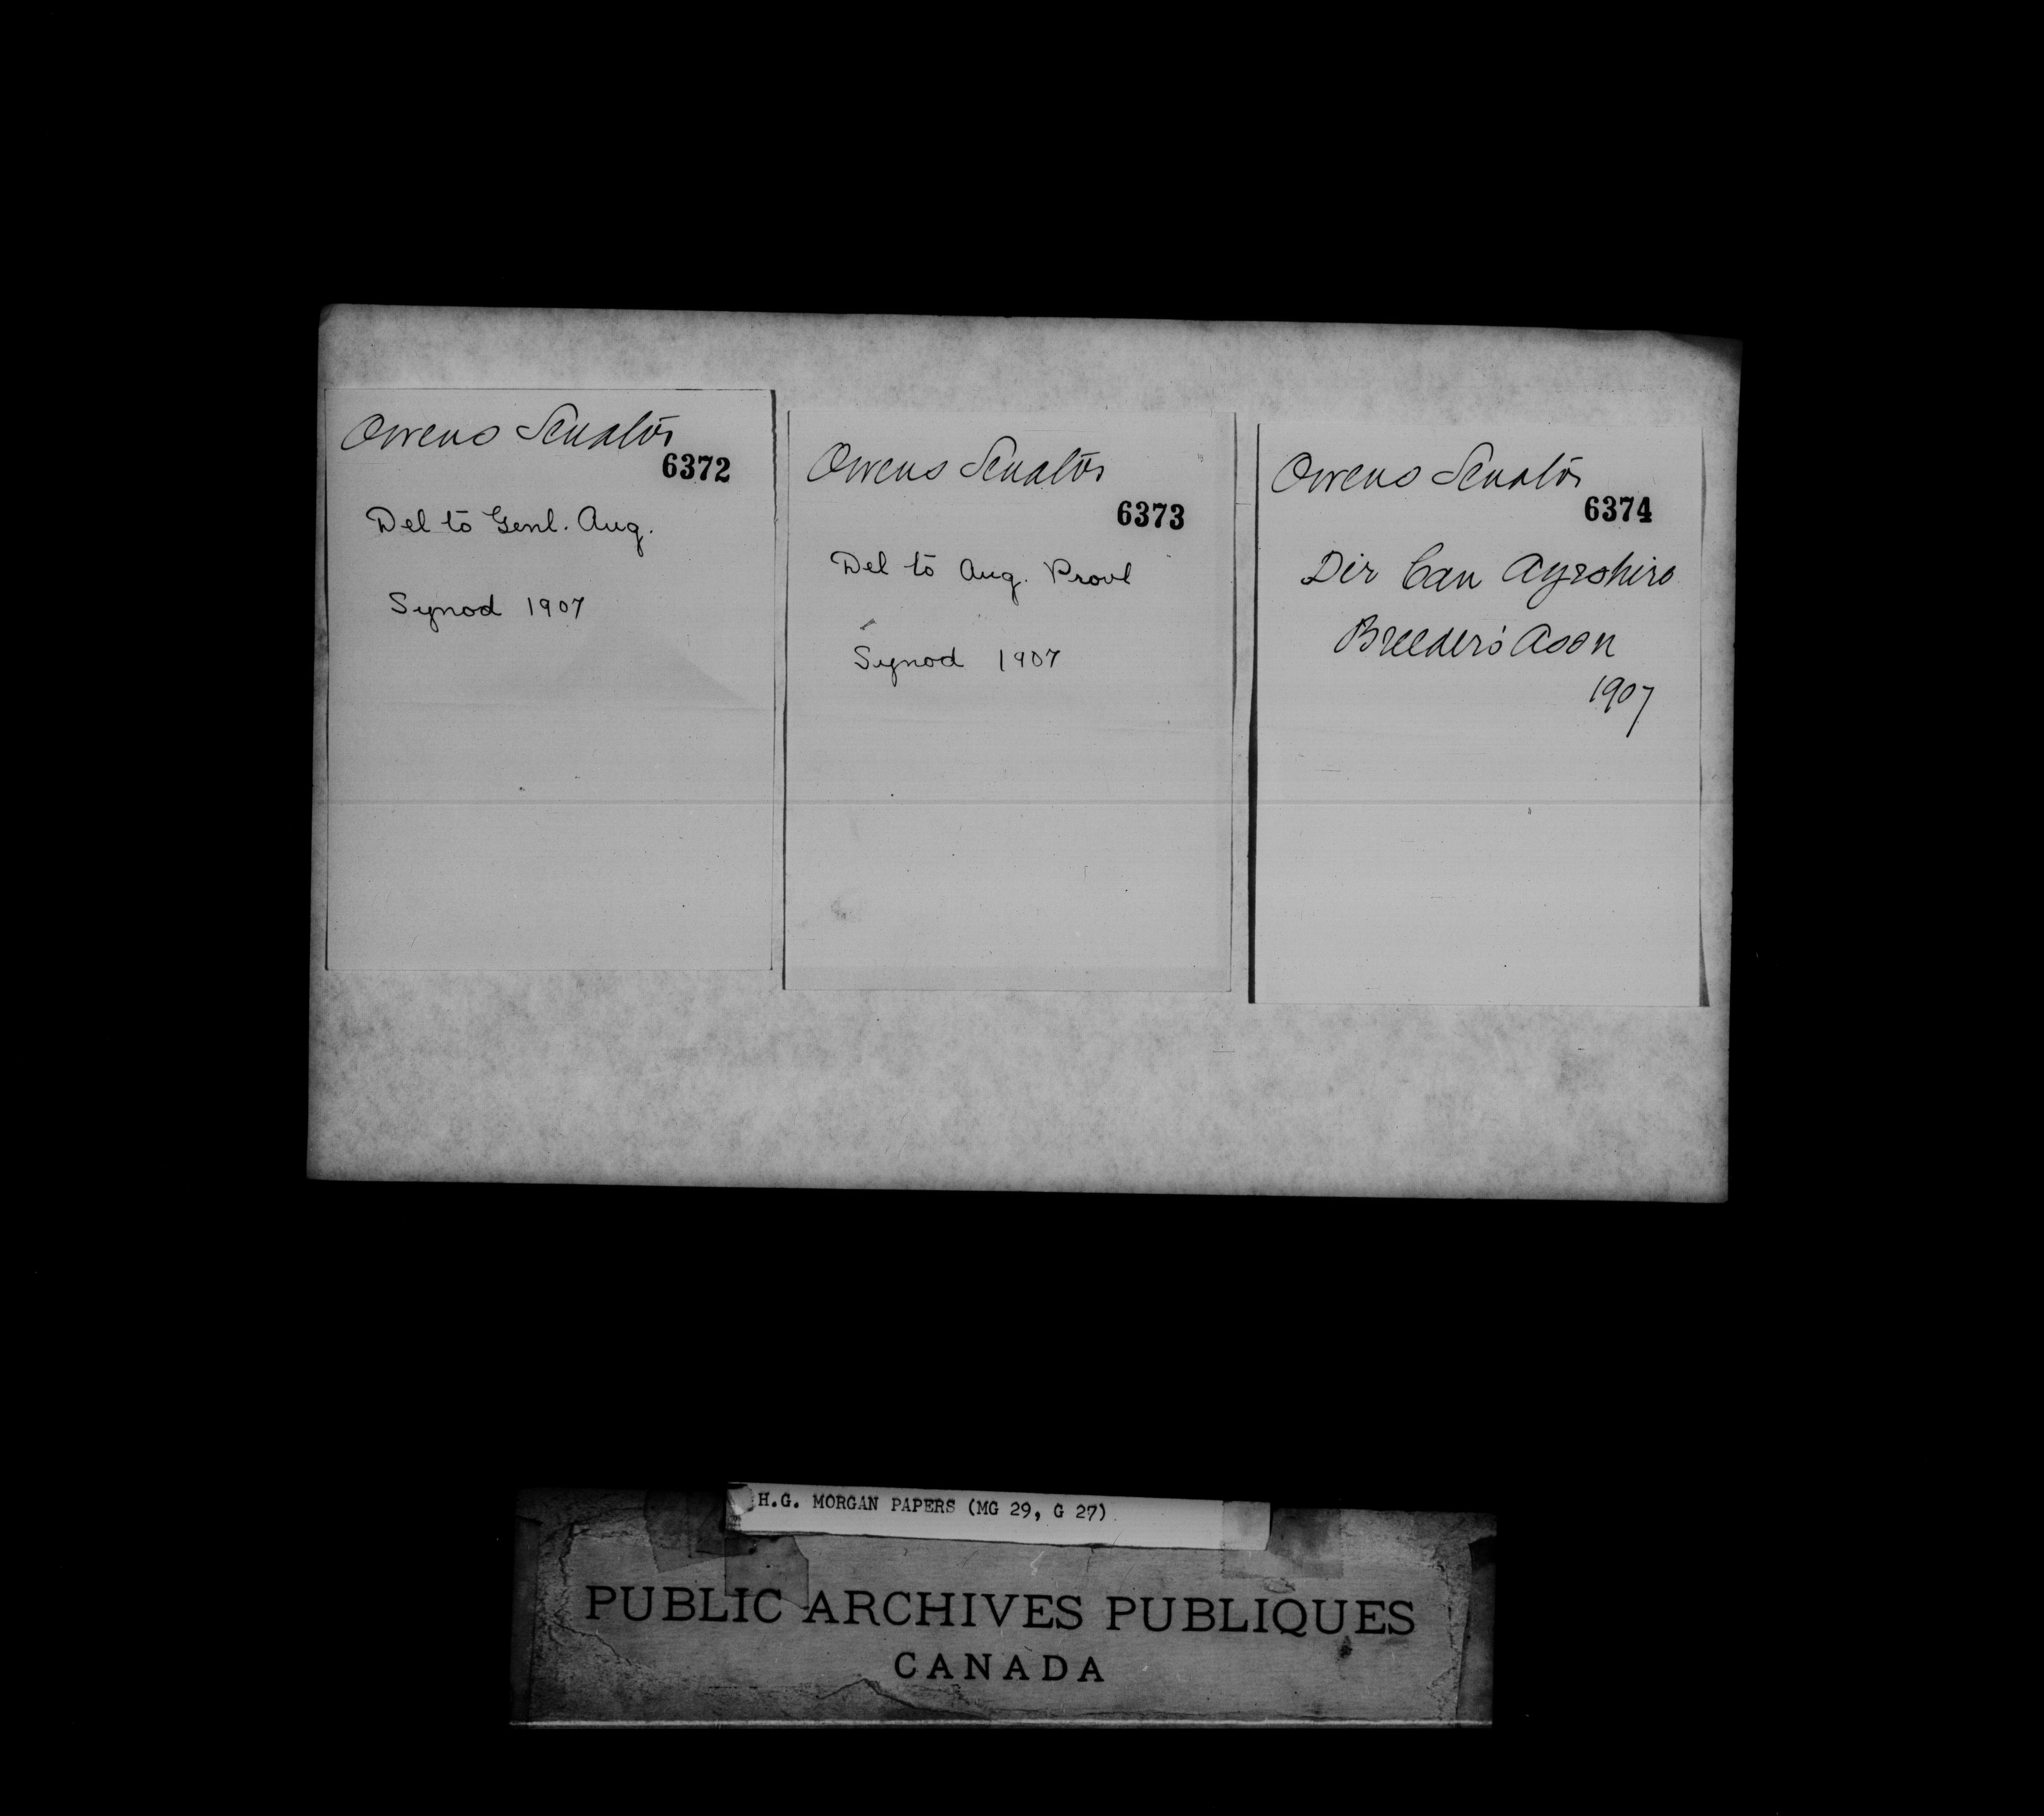 Owens Senator
6372
Del to Genl. Ang.
Synod 1907
Owens Senator
6373
Del to Ang. Provl
Synod 1907
Owens Senator
6374
Dir Can Ayrshire
Breeders' Assn
1907
H.G. MORGAN PAPERS (MG 29, G 27)
PUBLIC ARCHIVES PUBLIQUES
CANADA